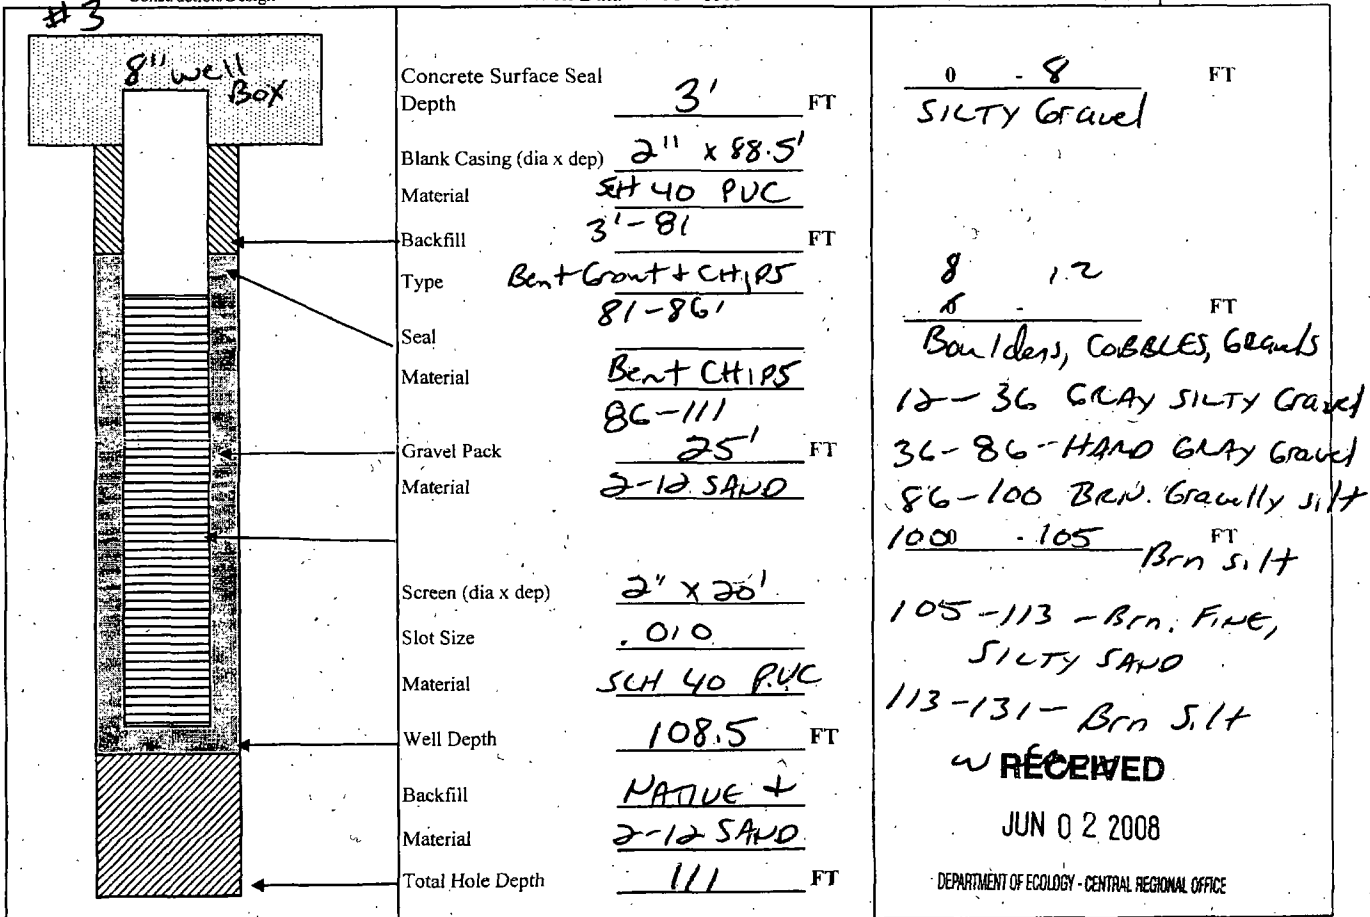 #3
8" well
Box
Concrete Surface Seal
Depth 3' FT
Blank Casing (dia x dep) 2" x 88.5'
Material SCH 40 PVC
Backfill 3'-81 FT
Type Bent Grout + CHIPS
81-86'
Seal
Material Bent CHIPS
86-111
Gravel Pack 25' FT
Material 2-12 SAND
Screen (dia x dep) 2" x 20'
Slot Size .010
Material SCH 40 PVC
Well Depth 108.5 FT
Backfill NATIVE +
Material 2-12 SAND
Total Hole Depth 111 FT
0 - 8 FT
SILTY Gravel
8 12
- FT
Boulders, COBBLES, GRavels
12-36 GRAY SILTY Gravel
36-86-HARD GRAY Gravel
86-100 BRN. Gravelly silt
100 - 105 FT
Brn silt
105-113 - Brn. FINE,
SILTY SAND
113-131- Brn Silt
RECEIVED
JUN 02 2008
DEPARTMENT OF ECOLOGY - CENTRAL REGIONAL OFFICE